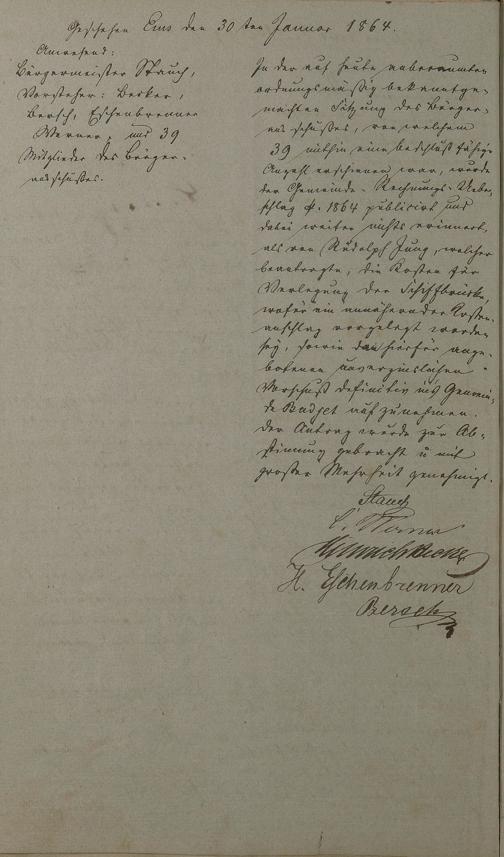 Geschehen Ems den 30ten Januar 1864.
Anwesend:
Bürgermeister Stauch,
Vorsteher: Becker,
Bersch, Eschenbrenner
Werner, und 39
Mitglieder des Bürger-
ausschußes.
In der auf heute anberaumten
ordnungsmäßig bekanntge-
machten Sitzung des Bürger-
ausschußes, von welchem
39 mithin eine beschlußfähige
Anzahl erschienen war, wurde
der Gemeinde-Rechnungs-Ueber-
schlag p. 1864 publicirt und
dabei weiter nichts erinnert,
als von Rudolph Jung, welcher
beantragte, die Kosten für
Verlegung der Schiffbrücke,
wofür ein annähernder Kosten-
anschlag vorgelegt worden
sey, sowie den hierfür ange-
botenen unverzinslichen
Vorschuß definitiv ins Gemein-
de Budget aufzunehmen.
Der Antrag wurde zur Ab-
stimmung gebracht u mit
großer Mehrheit genehmigt.
Stauch
C. Werner
Heinrich Becker
H. Eschenbrenner
Bersch